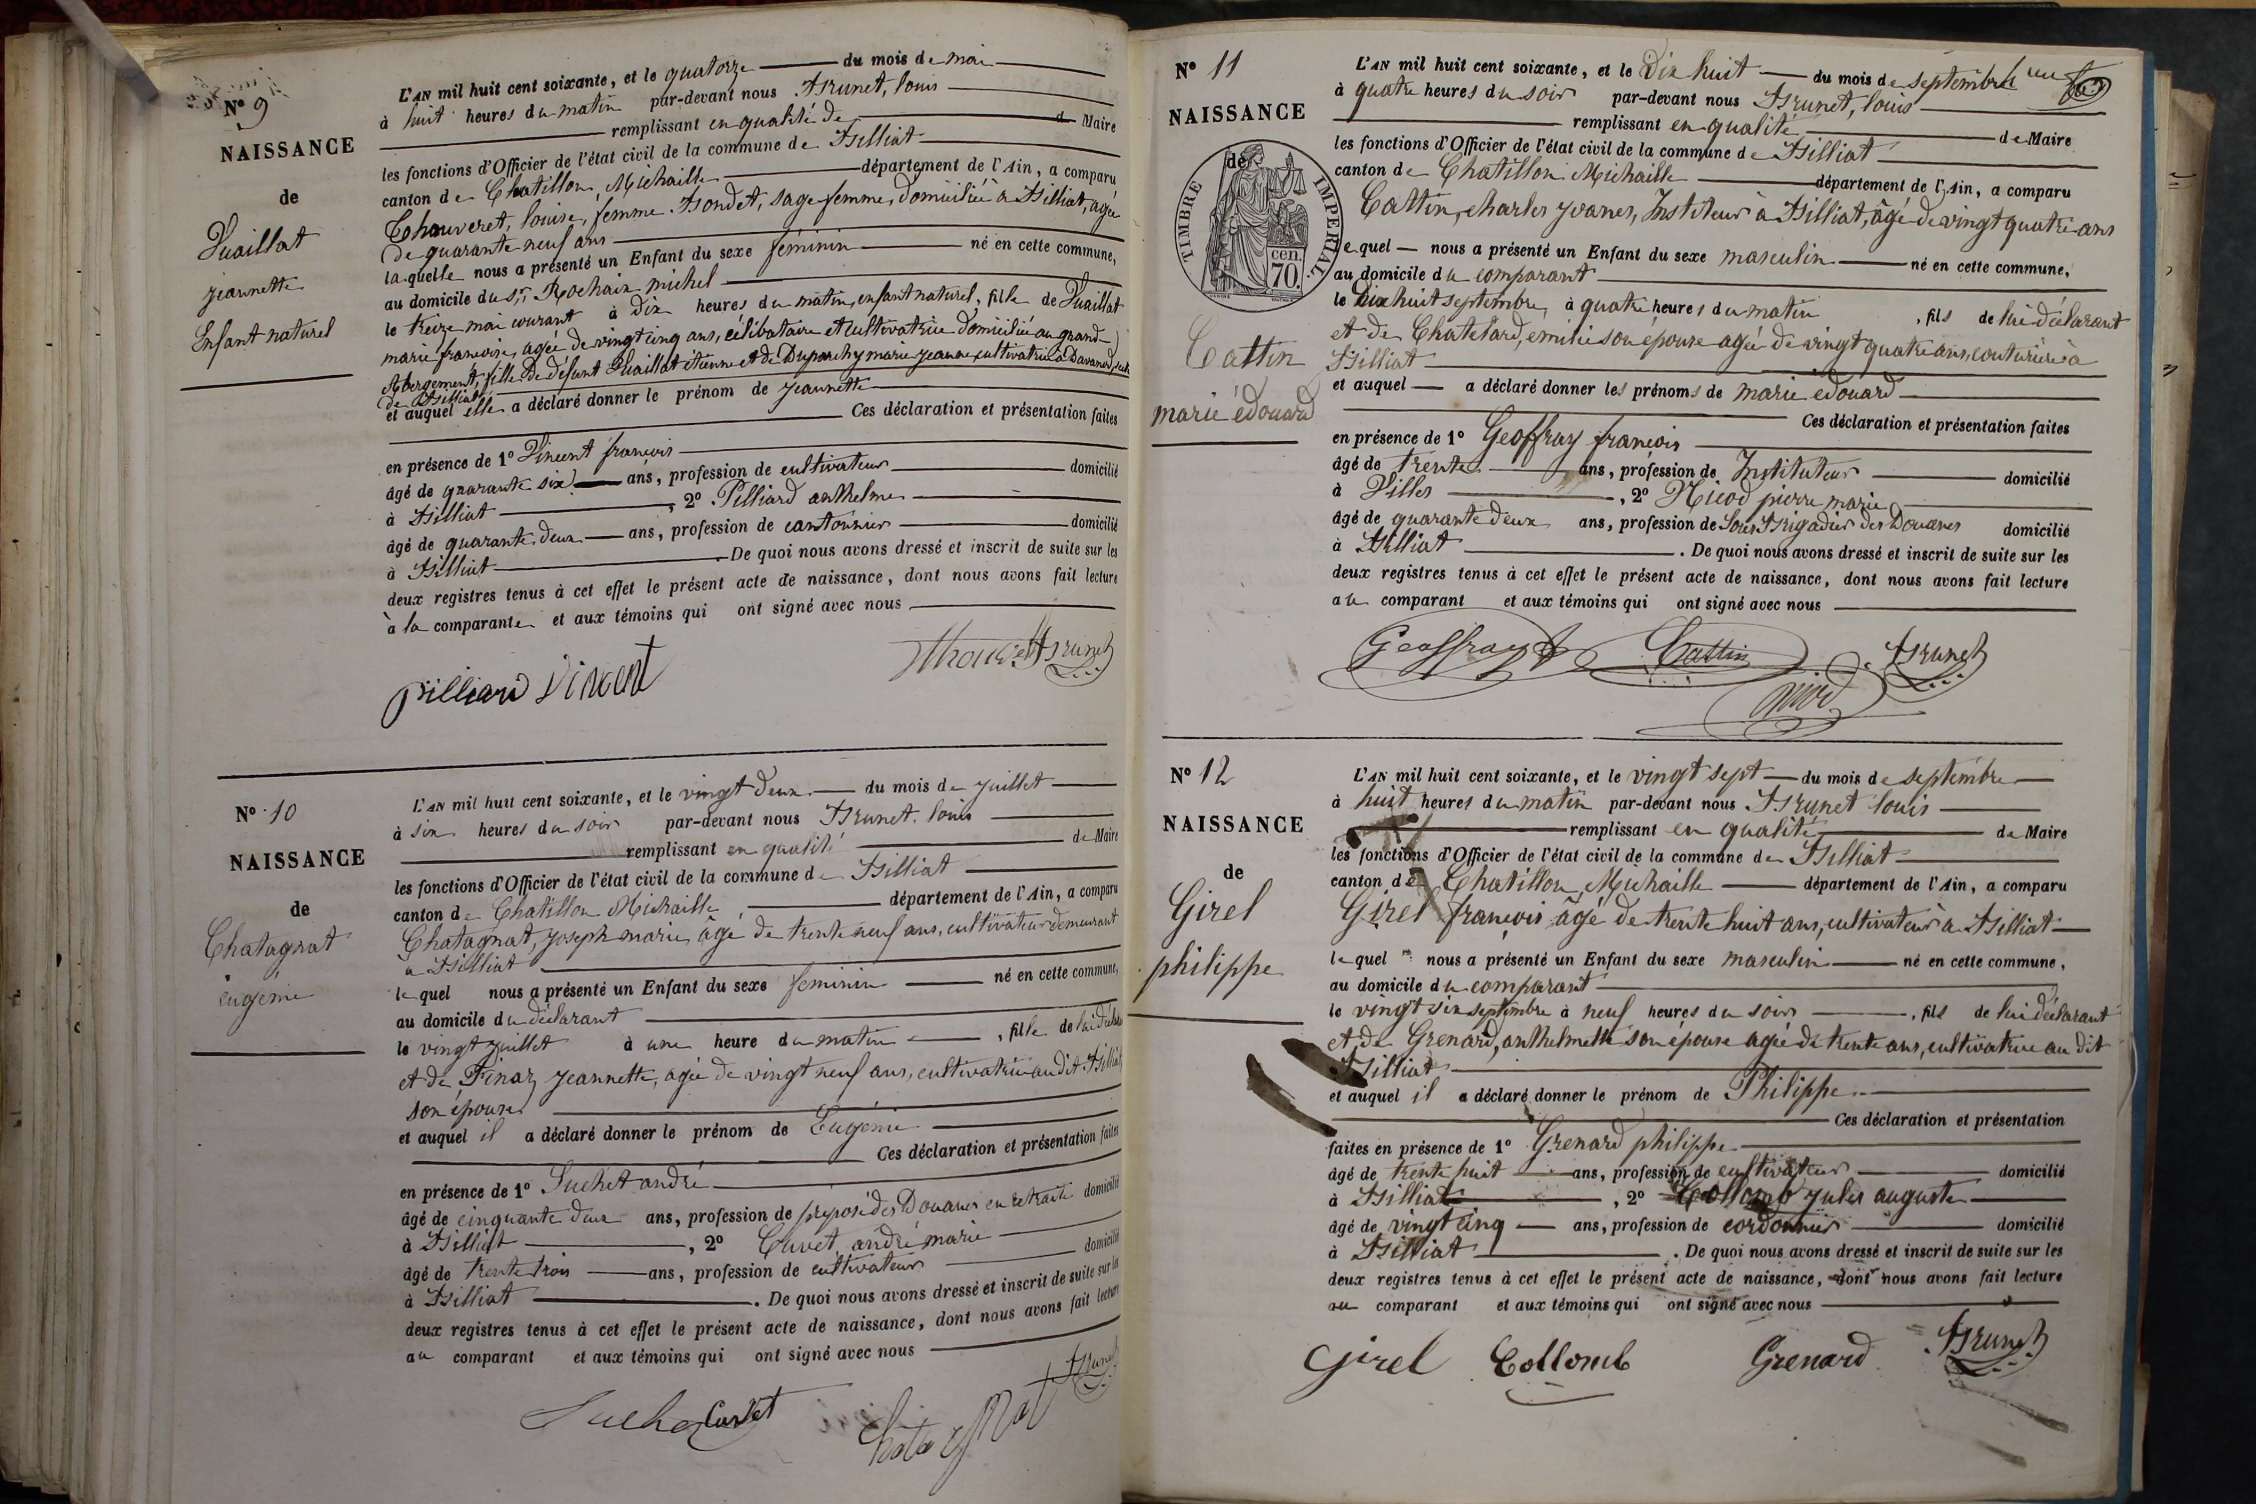 N° 9
NAISSANCE
de
Vuaillat
jeannette
Enfant naturel
L'AN mil huit cent soixante, et le quatorze du mois de mai
à huit heures du matin par-devant nous Brunet, louis
remplissant en qualité de Maire
les fonctions d'Officier de l'état civil de la commune de Billiat
canton de Chatillon Michaille département de l'Ain, a comparu
Thouveret, louise, femme Bondet, sage femme, domiciliée à Billiat, agée
de quarante neuf ans
laquelle nous a présenté un Enfant du sexe féminin né en cette commune,
au domicile du Sr Rochaix michel
le treize mai courant à Dix heures du matin, enfant naturel, fille de Vuaillat
marie françoise, agée de vingt cinq ans, célibataire et cultivatrice domiciliée au grand
Abergement, fille de défunt Vuaillat étienne et de Duparchy marie jeanne, cultivatrice à Davanod,
de Billiat,
et auquel elle a déclaré donner le prénom de jeannette
Ces déclaration et présentation faites
en présence de 1° Vincent françois
âgé de quarante six ans, profession de cultivateur domicilié
à Billiat, 2° Pilliard anthelme
âgé de quarante deux ans, profession de cantonnier domicilié
à Billiat. De quoi nous avons dressé et inscrit de suite sur les
deux registres tenus à cet effet le présent acte de naissance, dont nous avons fait lecture
à la comparante et aux témoins qui ont signé avec nous
pilliard Vincent Brunet
N° 10
NAISSANCE
de
Chatagnat
eugénie
L'AN mil huit cent soixante, et le vingt deux du mois de juillet
à six heures du soir par-devant nous Brunet louis
remplissant en qualité de Maire
les fonctions d'Officier de l'état civil de la commune de Billiat
canton de Chatillon Michaille département de l'Ain, a comparu
Chatagnat, joseph marie, âgé de trente neuf ans, cultivateur demeurant
à Billiat
lequel nous a présenté un Enfant du sexe féminin né en cette commune,
au domicile du déclarant
le vingt juillet à une heure du matin, fille de lui déclarant
et de Pinaz jeannette, agée de vingt neuf ans, cultivatrice au dit Billiat
son épouse
et auquel il a déclaré donner le prénom de Eugénie
Ces déclaration et présentation faites
en présence de 1° Suchet andré
âgé de cinquante deux ans, profession de préposé des Douanes en retraite domicilié
à Billiat, 2° Curvet andré marie
âgé de trente trois ans, profession de cultivateur domicilié
à Billiat. De quoi nous avons dressé et inscrit de suite sur les
deux registres tenus à cet effet le présent acte de naissance, dont nous avons fait lecture
au comparant et aux témoins qui ont signé avec nous
Suchet Curvet Chatagnat Brunet
N° 11
NAISSANCE
de
TIMBRE IMPERIAL
70 cen.
Cattin
marie édouard
L'AN mil huit cent soixante, et le Dix huit du mois de septembre
à quatre heures du soir par-devant nous Brunet, louis
remplissant en qualité de Maire
les fonctions d'Officier de l'état civil de la commune de Billiat
canton de Chatillon Michaille département de l'Ain, a comparu
Cattin, charles yvanes, Instituteur à Billiat, âgé de vingt quatre ans
lequel nous a présenté un Enfant du sexe masculin né en cette commune,
au domicile du comparant
le Dix huit septembre, à quatre heures du matin, fils de lui déclarant
et de Chatelard, emilie son épouse agée de vingt quatre ans, couturière à
Billiat
et auquel a déclaré donner les prénoms de marie édouard
Ces déclaration et présentation faites
en présence de 1° Geoffray françois
âgé de trente ans, profession de Instituteur domicilié
à Villes, 2° Nicod pierre marie
âgé de quarante deux ans, profession de Sous Brigadier des Douanes domicilié
à Billiat. De quoi nous avons dressé et inscrit de suite sur les
deux registres tenus à cet effet le présent acte de naissance, dont nous avons fait lecture
au comparant et aux témoins qui ont signé avec nous
Geoffray Cattin Brunet
Nicod
N° 12
NAISSANCE
de
Girel
philippe
L'AN mil huit cent soixante, et le vingt sept du mois de septembre
à huit heures du matin par-devant nous Brunet louis
remplissant en qualité de Maire
les fonctions d'Officier de l'état civil de la commune de Billiat
canton de Chatillon Michaille département de l'Ain, a comparu
Girel françois âgé de trente huit ans, cultivateur à Billiat
lequel nous a présenté un Enfant du sexe masculin né en cette commune,
au domicile du comparant
le vingt six septembre à neuf heures du soir, fils de lui déclarant
et de Grenard, anthelmette son épouse agée de trente ans, cultivatrice au dit
Billiat
et auquel il a déclaré donner le prénom de Philippe
Ces déclaration et présentation
faites en présence de 1° Grenard philippe
âgé de trente huit ans, profession de cultivateur domicilié
à Billiat, 2° Collomb jules auguste
âgé de vingt cinq ans, profession de cordonnier domicilié
à Billiat. De quoi nous avons dressé et inscrit de suite sur les
deux registres tenus à cet effet le présent acte de naissance, dont nous avons fait lecture
au comparant et aux témoins qui ont signé avec nous
Girel Collomb Grenard Brunet